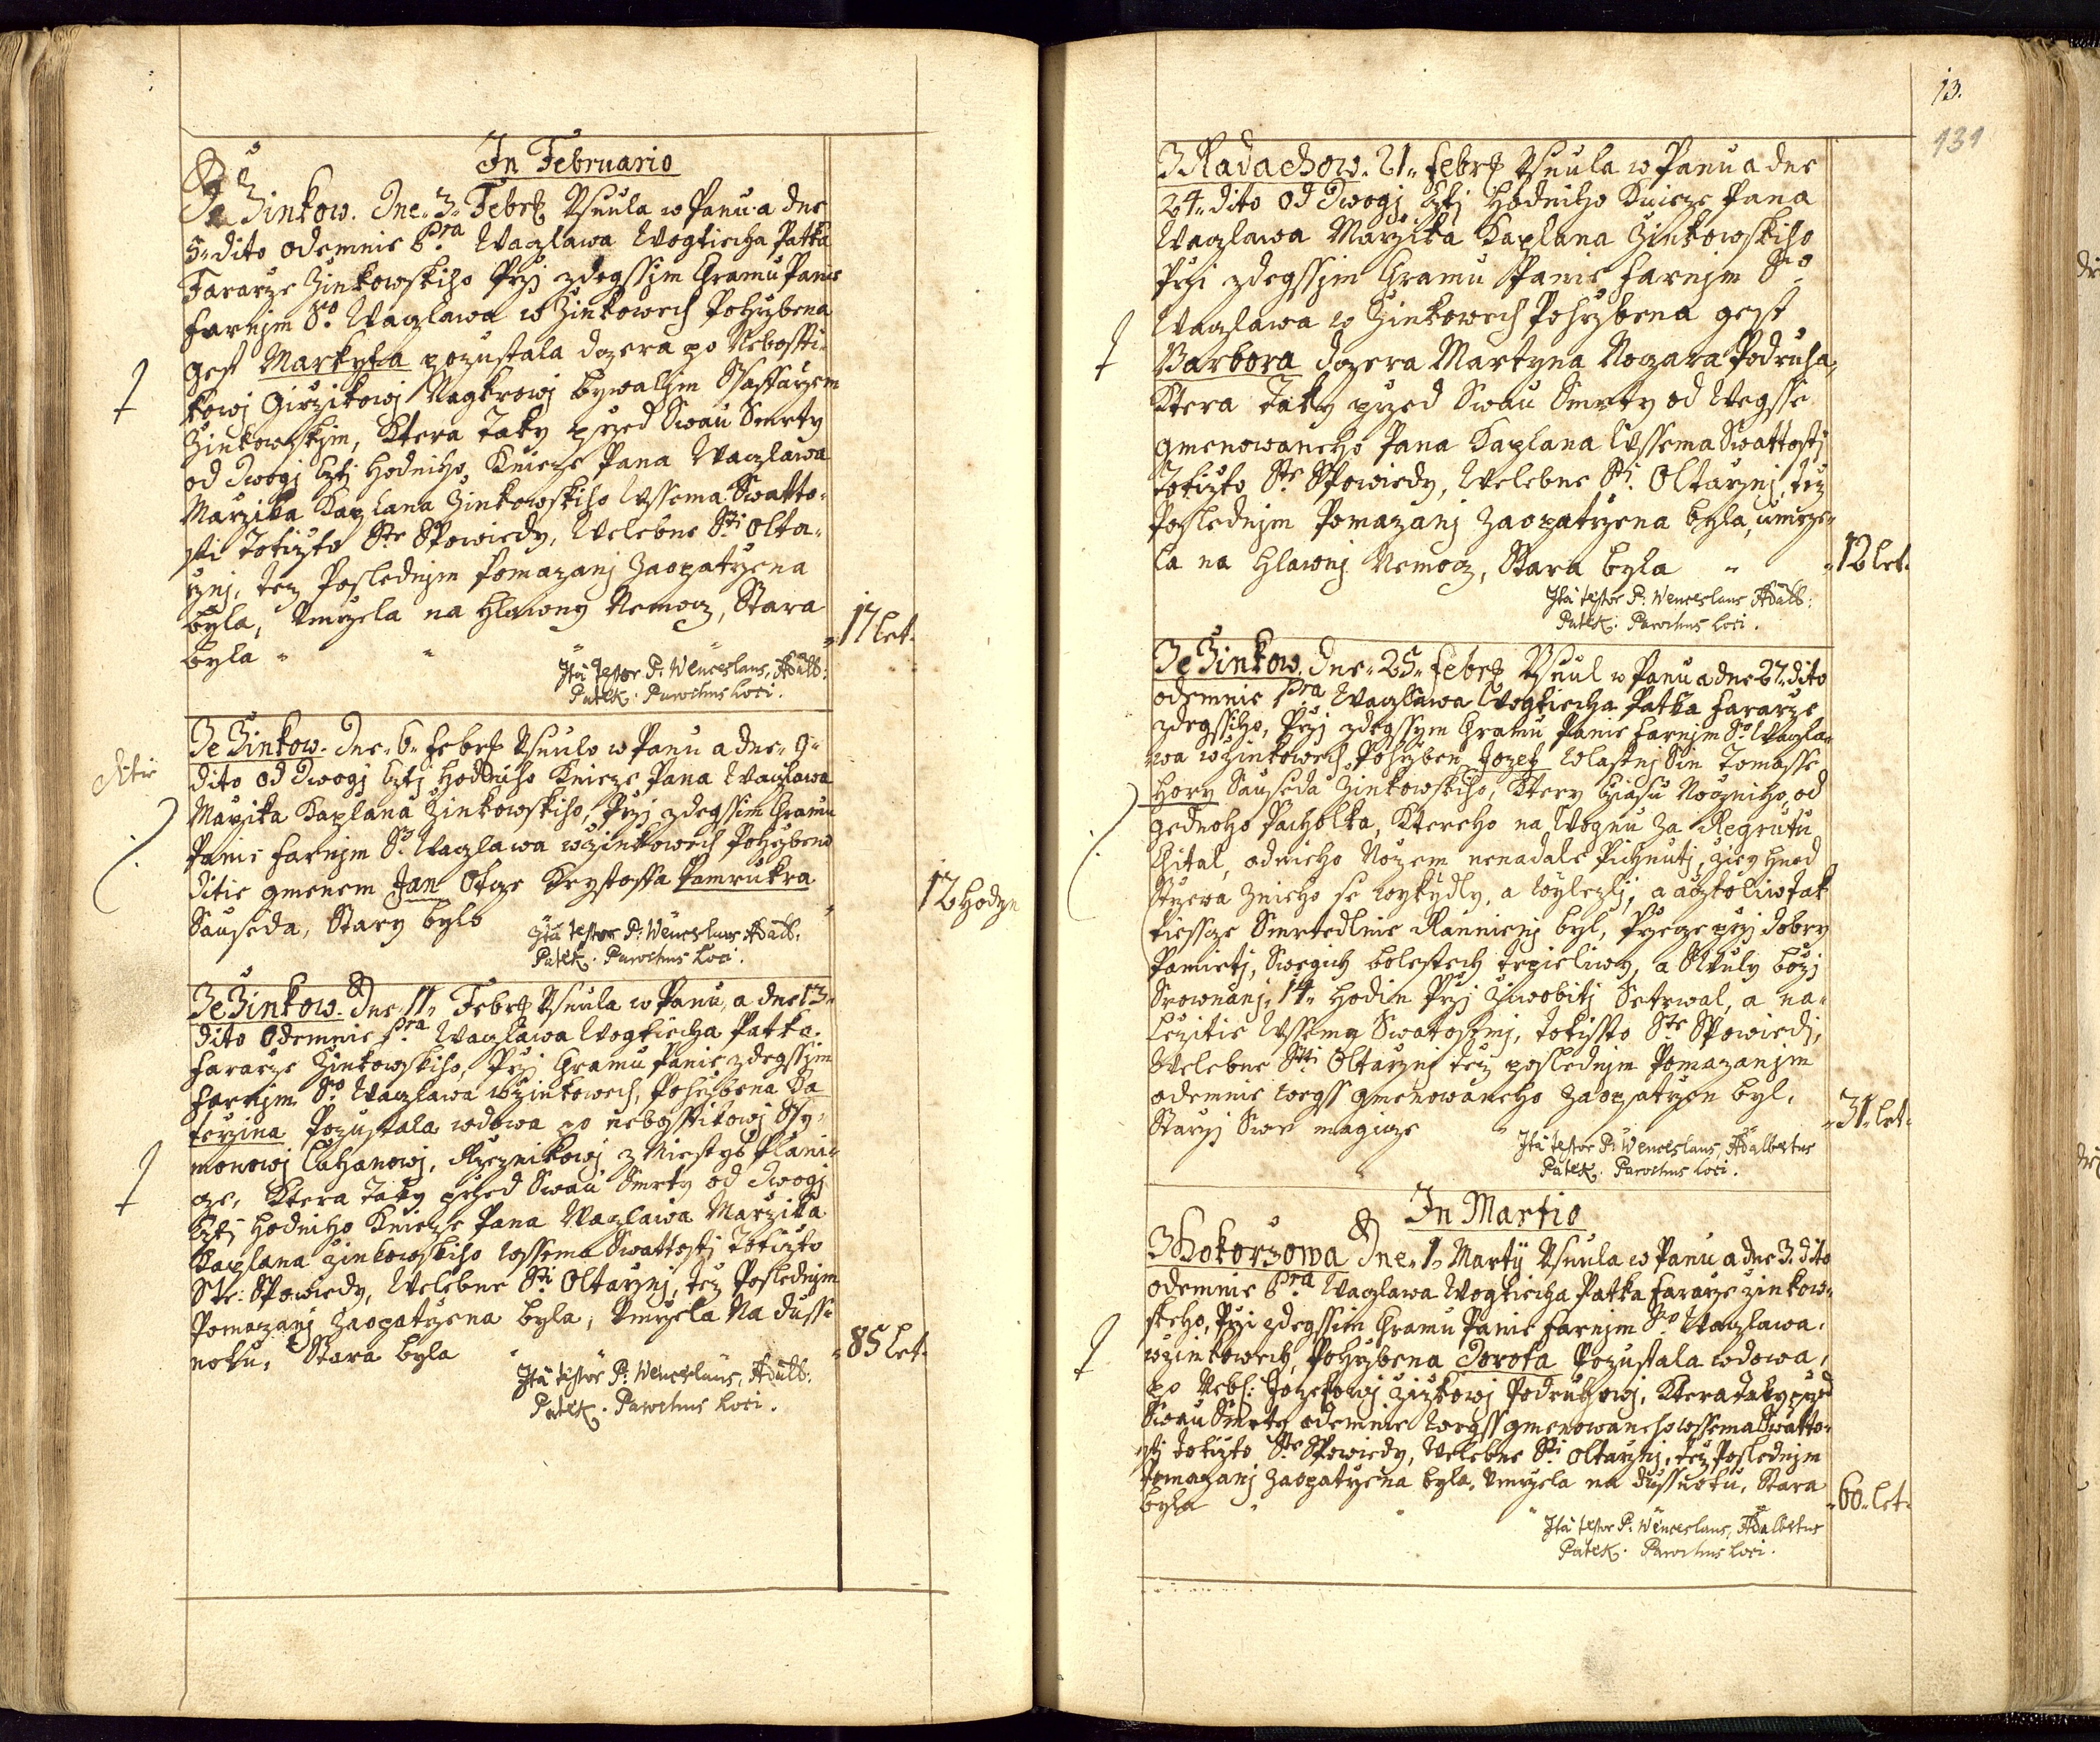 In Februario
Ze Žinkow. Dne 3. Febr. Usnula w Panu a dne
5. dito odemnie Pra Waczlawa Wogtiecha Patka
Fararze Žinkowskiho Przj zdegssjm Chramu Panie
Farnjm So Waczlawa w Žinkowech Pohrzbena
gest Markyta pozustala dczera po Nebossti-
kowj Girzikowj Nagbrowj bywalym Ssaffarzem
Žinkowskym, Ktera taky przed Swau Smrty
od Dwogj Cztj Hodniho Knieze Pana Waczlawa
Marzika Kaplana Žinkowskiho Wssema Swatto-
sti Totizto Ste Spowiedy, Welebne Sti Olta-
rznj, tez Poslednjm Pomazanj Zaopatrzena
byla, Umrzela na Hlawny Nemocz, Stara
byla
17 let.
Ita testor P: Wenceslaus, Adalb:
Patek. Parochus Loci.
Ze Žinkow. Dne 6. Febr. Usnulo w Panu a dne 9.
ditie
dito od Dwogj Cztj Hodniho Knieze Pana Waczlawa
Marzika Kaplana Žinkowskiho, Przj zdegssim Chramu
Panie Farnjm So Waczlawa w Žinkowech Pohrzbeno
ditie gmenem Jan Otcze Krystoffa Pamrukra
Sauseda, Stary bylo
12 Hodzn
Ita testor P: Wenceslaus Adalb:
Patek. Parochus Loci.
Ze Žinkow. Dne 11. Febr. Usnula w Panu, a dne 13.
dito Odemnie Pra Waczlawa Wogtiecha Patka
Fararze Žinkowskiho, Przj Chramu Panie zdegssjm
Farnjm So Waczlawa w Žinkowech, Pohrzbena Ka-
terzina Pozustala wdowa po nebosstikowj Ssy-
monowj Cahanowj, Rzeznikowj z Miestys Plani-
cze, Ktera Taky przed Swau Smrty od Dwogj
Cztj Hodniho Knieze Pana Waczlawa Marzika
Kaplana Žinkowskiho Wssema Swattostj Totizto
Ste: Spowiedy, Welebne Sti Oltarznj, tez Poslednjm
Pomazanj Zaopatrzena byla, Umrzela Na dussi-
notu, Stara byla
85 let.
Ita testor P: Wenceslaus, Adalb:
Patek. Parochus Loci.
13.
131
Z Radachow. 21. Febr. Usnula w Panu a dne
24. dito od Dwogj Cztj Hodniho Knieze Pana
Waczlawa Marzika Kaplana Žinkowskiho
Przi zdegssjm Chramu Panie Farnjm So
Waczlawa w Žinkowech Pohrzbena gest
Barbora dczera Martyna Noczara Podruha,
Ktera Taky przed Swau Smrty od Wegsse
gmenowaneho Pana Kaplana Wssema Swattostj
Totizto Ste Spowiedy, Welebne Sti. Oltarznj, tez
Poslednjm Pomazanj Zaopatrzena byla, umrze-
la na Hlawnj Nemocz, Stara byla
12 let.
Ita testor P: Wenceslaus Adalb:
Patek. Parochus Loci.
Ze Žinkow. Dne 25. Febr. Usnul w Panu a dne 27. dito
odemnie Pra Waczlawa Wogtiecha Patka Fararze
zdegssiho, Przj zdegssym Chramu Panie Farnjm So Waczla-
wa w Žinkowech Pohrzben Jozef Wlastnj Sin Tomasse
Hory Sauseda Žinkowskiho, Ktery Cziasu Nocznijho, od
gednoho Pacholka, Ktereho na Wognu Za Regrutu
Chital, od nieho Nozem nenadale Pichnutj, hned
Strzewa Zniho se wykydly, a wylezlj, a acztoliw tak
tiessce Smrtedlnie Rannienj byl, Przecze przj dobry
Pamietj, Swegich bolestech trpieliwy, a Wuly bozj
Srownanj 14. Hodin Przj Ziwobitj Setrwal, a na-
lezitie Wssema Swatostmj, totizto Ste Spowiedj,
Welebne Sti Oltarznj tez poslednjm Pomazanjm
odemnie wegss gmenowaneho Zaopatrzen byl,
Starzj Swe magicze
31. let.
Ita testor P: Wenceslaus, Adalbertus
Patek. Parochus Loci.
In Martio
Z Kokorzowa Dne 1. Martij Usnula w Panu a dne 3. dito
odemnie Pra Waczlawa Wogtiecha Patka Fararze Žinkow-
skeho, Przi zdegssim Chramu Panie Farnjm So Waczlawa
w Žinkowech, Pohrzbena Dorota Pozustala wdowa,
po Nebss: Jozefowj Zizkowj Podruhowj, Ktera taky przed
Swau Smrty odemnie wegss gmenowaneho wssema Swatto-
stj totizto Ste Spowiedy, Welebne Sti Oltarznj, tez Poslednjm
Pomazanj Zaopatrzena byla, Umrzela na dussnotu, Stara
byla
60. let.
Ita testor P: Wenceslaus, Adalbertus
Patek. Parochus Loci.